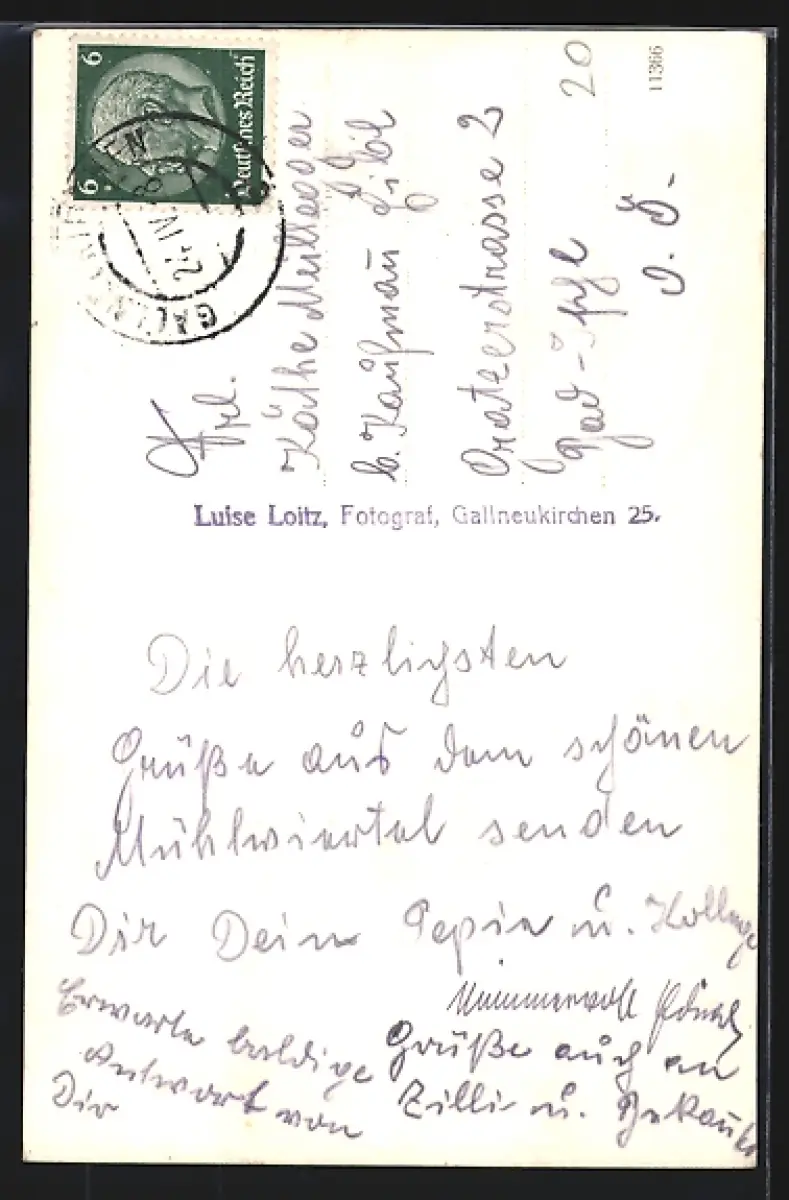 6 6
Deutsches Reich
GALLNEUKIRCHEN
11366
20
Frl.
Käthe
b. Kaufmann
Grazerstrasse 2
Bad-Ischl
O. D.
Luise Loitz, Fotograf, Gallneukirchen 25.
Die herzligsten
Grüße aus dem schönen
Mühlwiertel senden
Dir Dein Pepin u. Kollege
Erwarte baldige
Antwort von
Dir
Grüße auch an
Zilli u. Bekannte